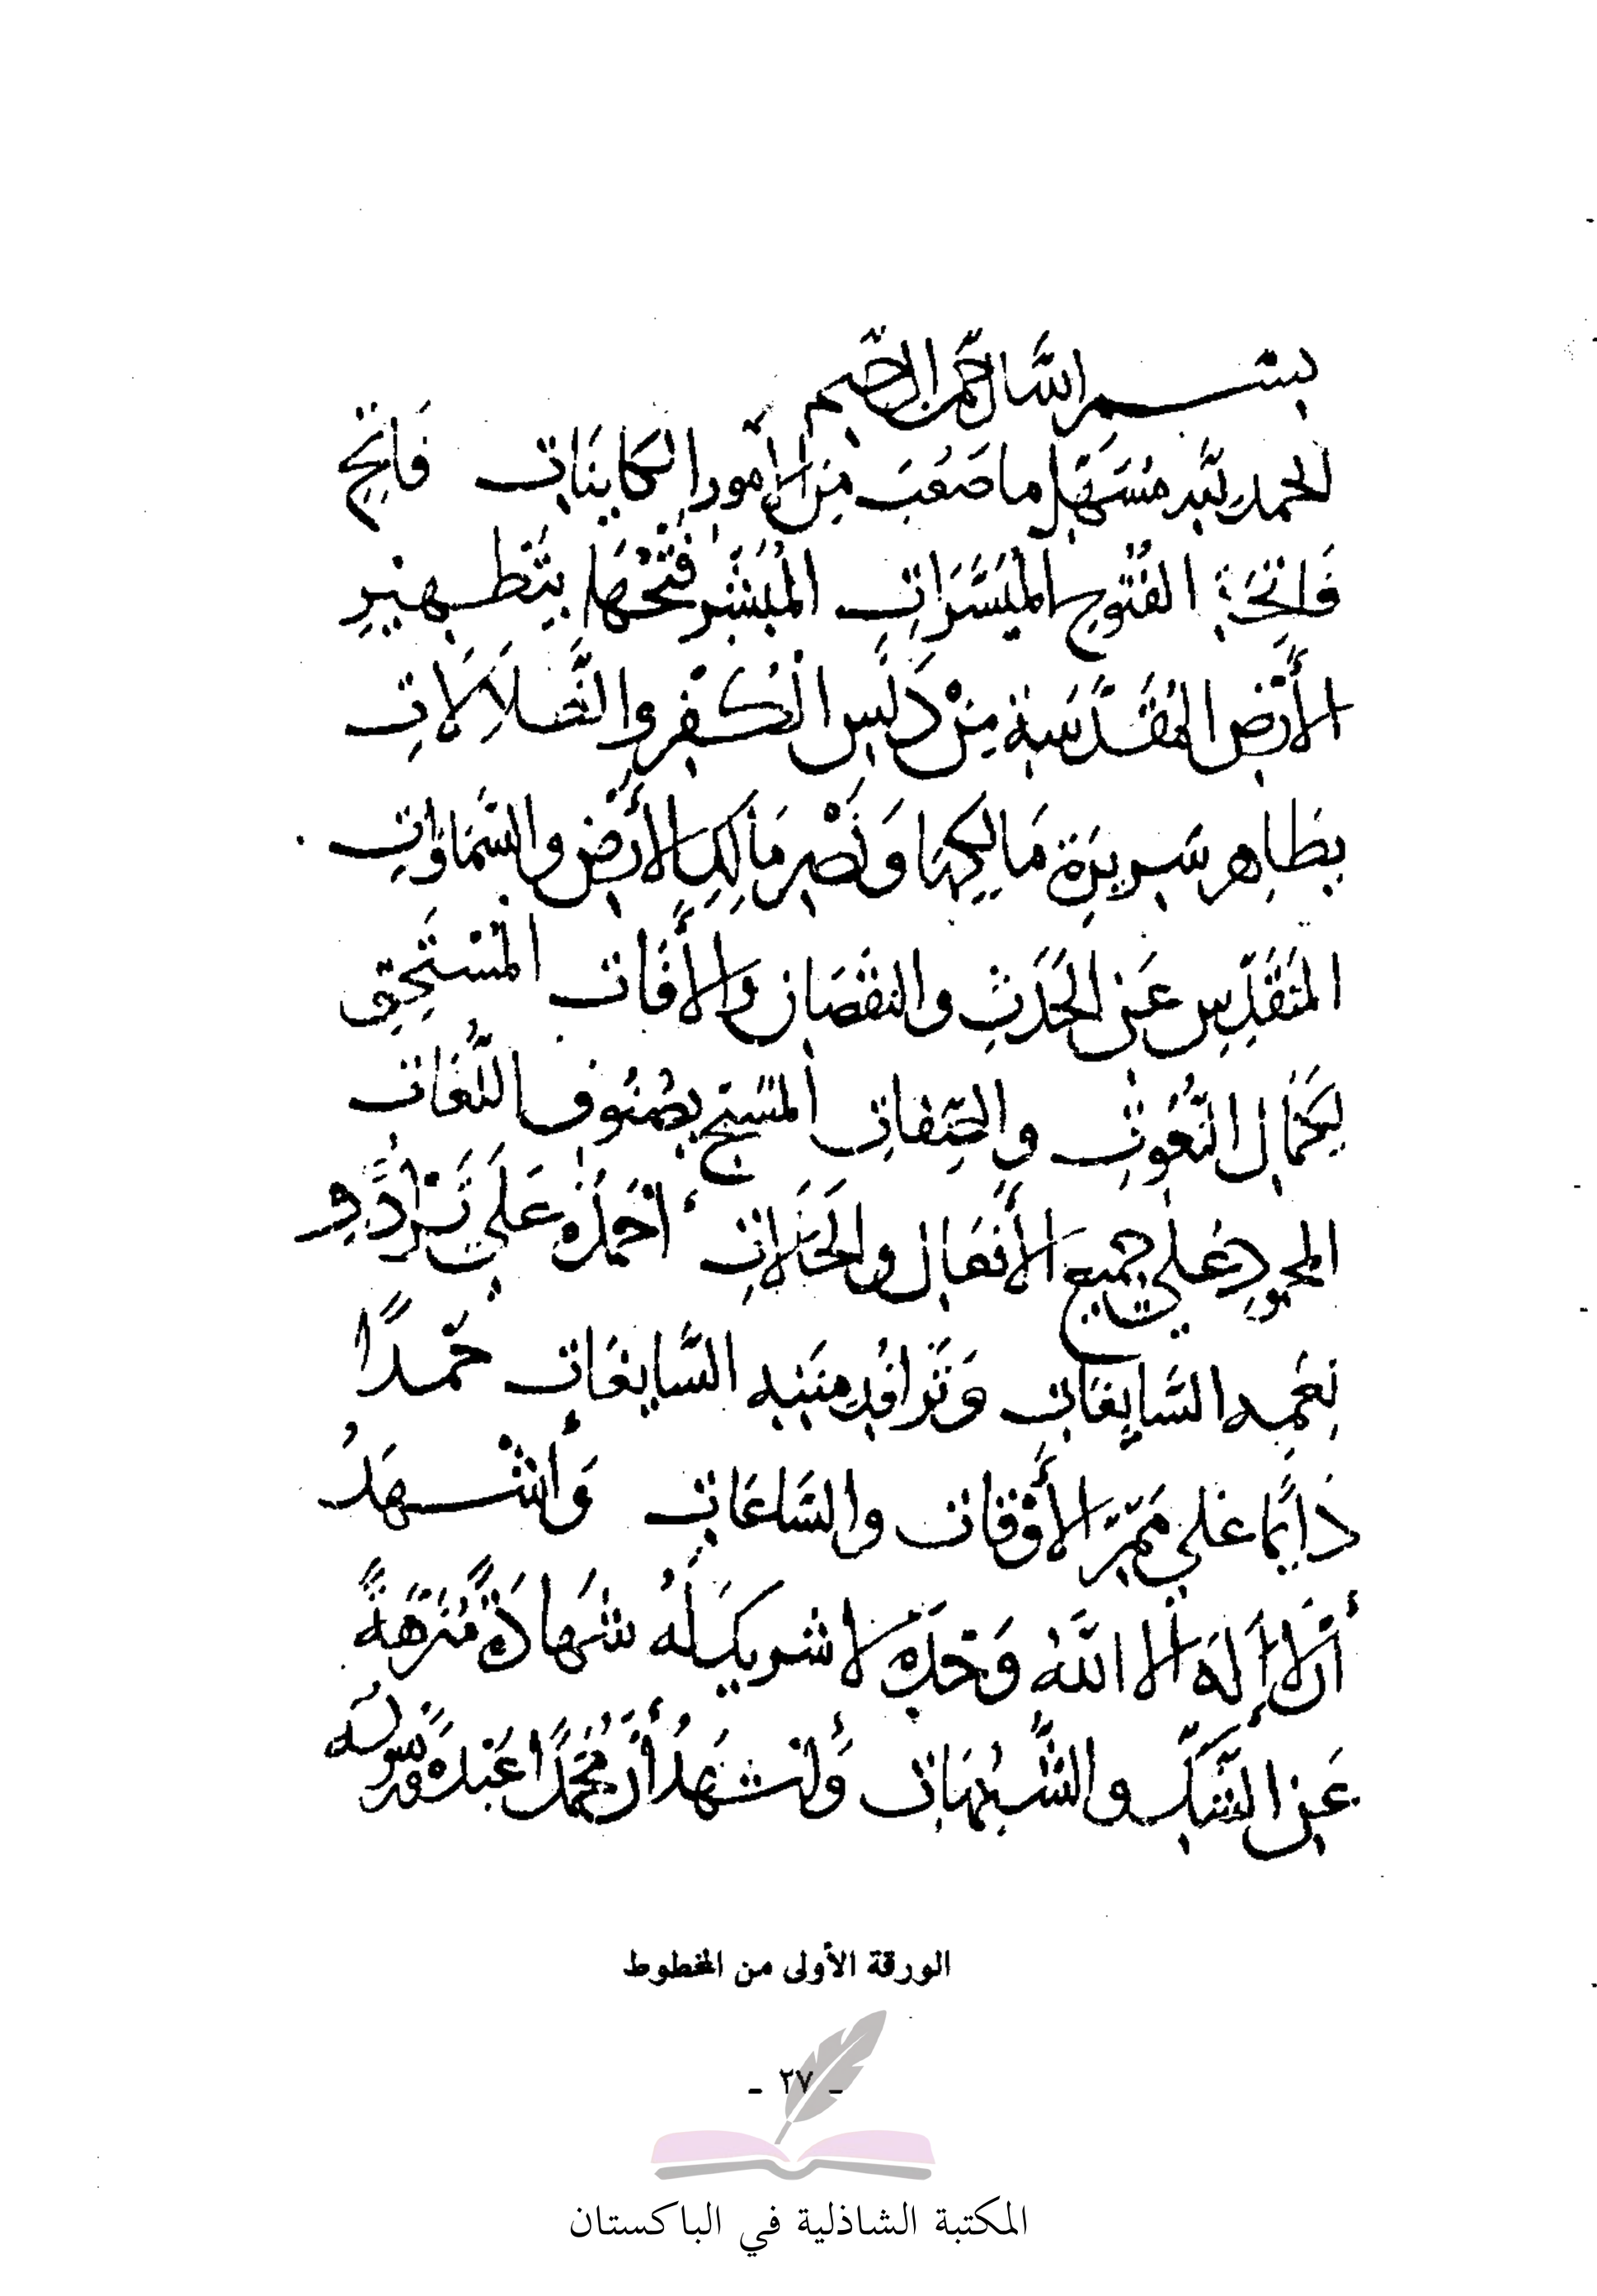 بسم الله الرحمن الرحيم
الحمد لله مسهل ما صعب من الأمور الكاينات فاتح
فاتحة الفتوح الميسرات المبشر فتحها بتطهير
الأرض المقدسة من دلس الكفر والضلالات
بطاهر سريرة مالكها ونصر مالك الأرض والسماوات
المتقدس عن الحدث والنقصان والأفات المستحق
لكمال النعوت والصفات المسبح بصنوف اللغات
المحمود على جميع الأفعال والحالات أحمده على ترادف
نعمه السابغات وترافد مننه السايغات حمدًا
دايمًا على ممر الأوقات والساعات وأشهد
أن لا إله إلا الله وحده لا شريك له شهادة منزهة
عن الشك والشبهات وأشهد أن محمدًا عبده ورسوله
الورقة الأولى من المخطوط
- ٢٧ -
المكتبة الشاذلية في الباكستان